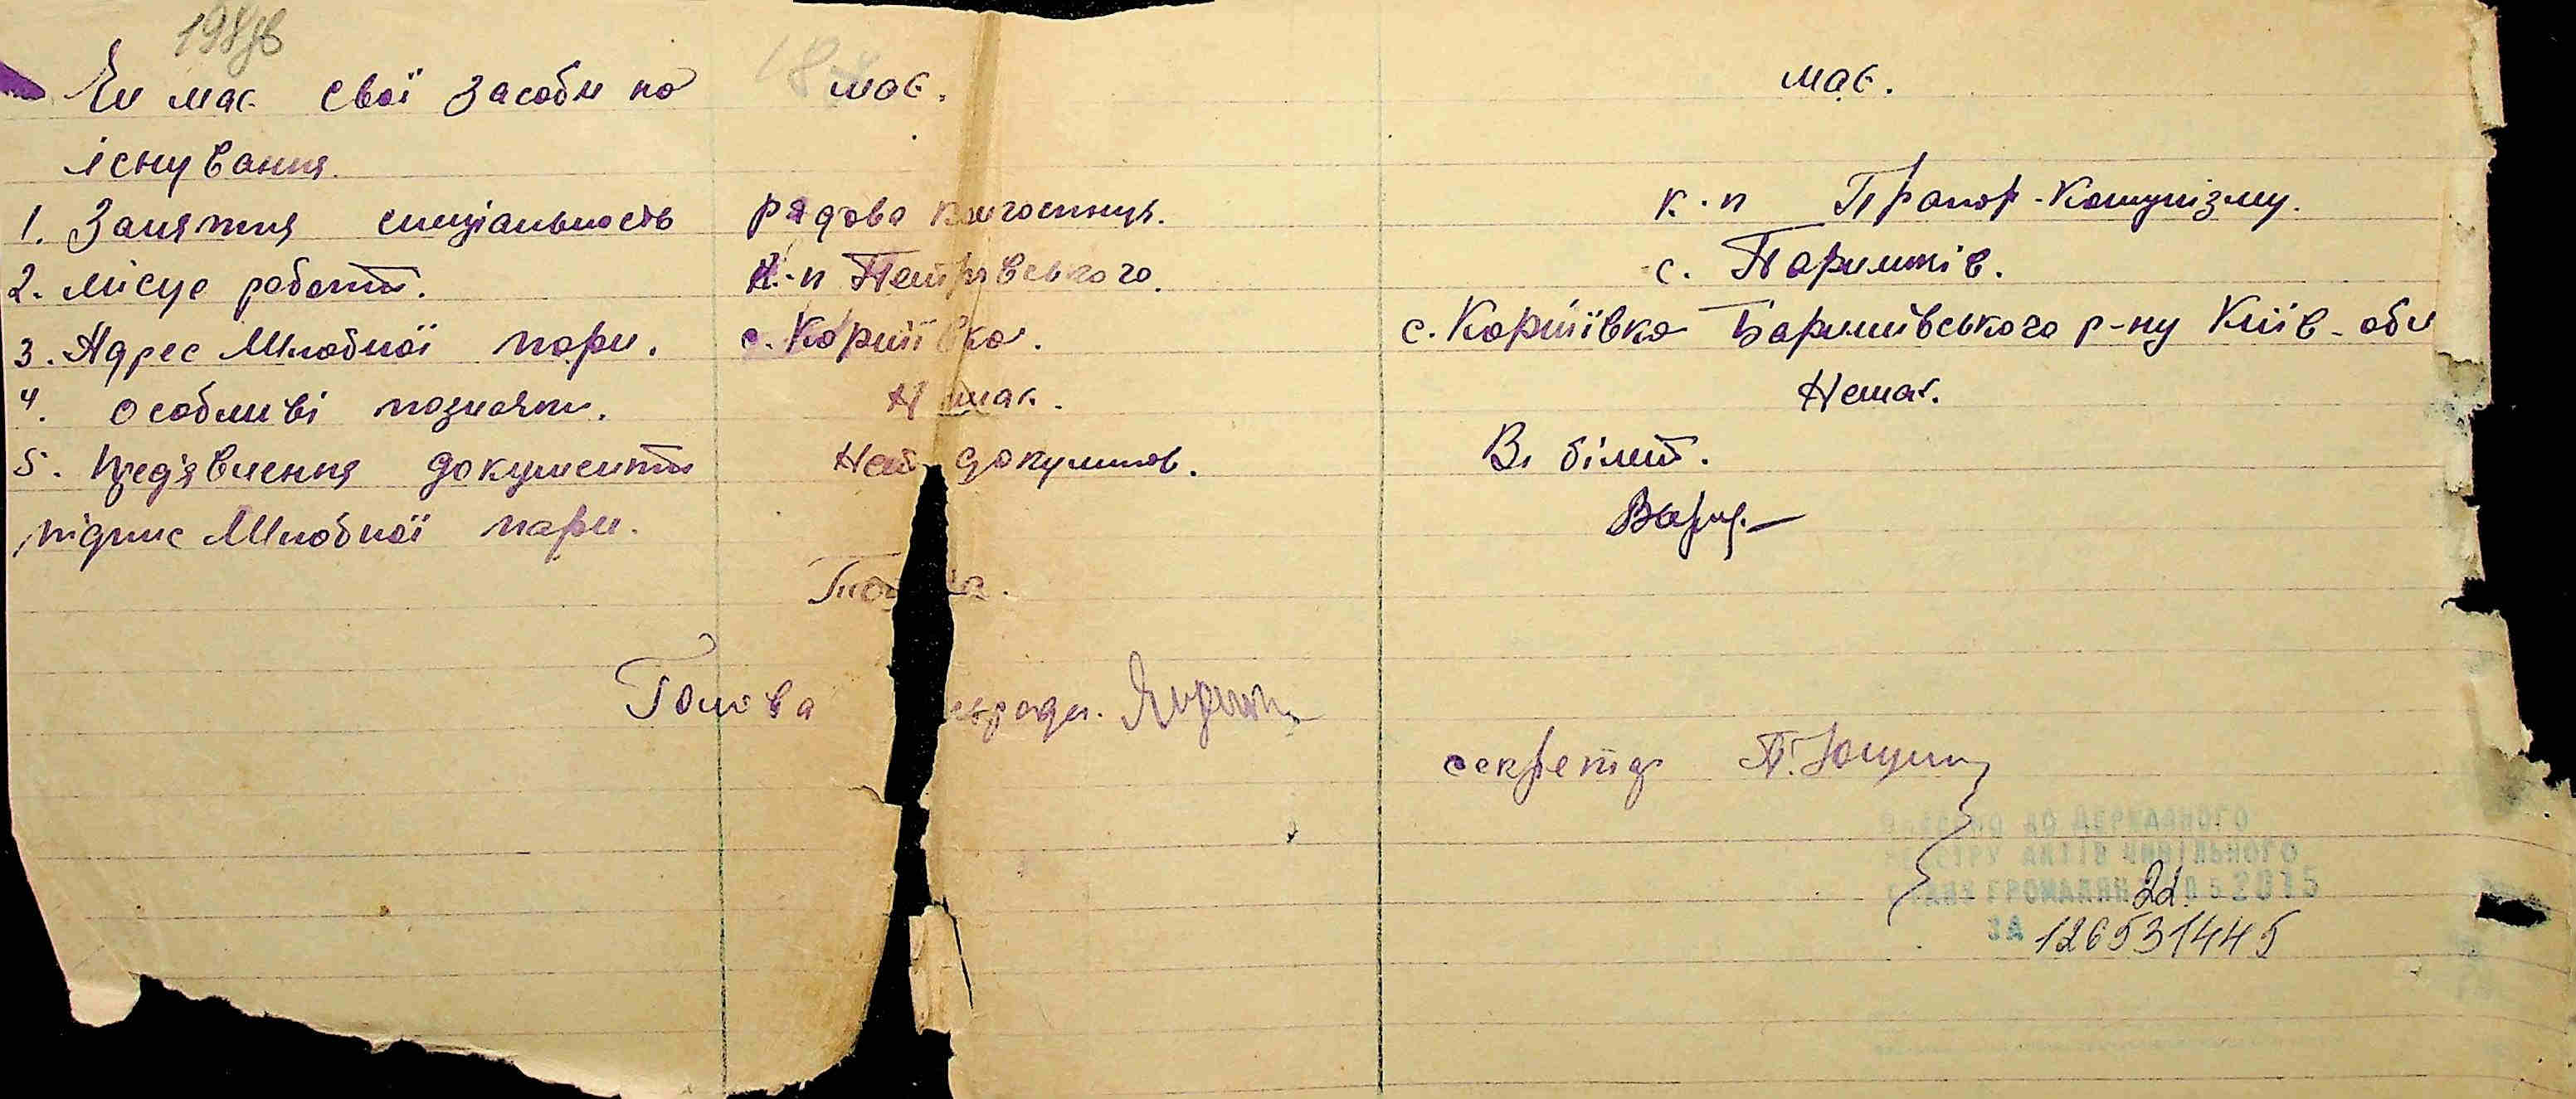 Чи має свої засоби на має. має.
існування.
1. Заняття спеціальность рядова колгоспниця. к-п Прапор-Комунізму.
2. місце роботи. к-п Петровського. с. Паришків.
3. Адрес Шлюбної пари. с. Корніївка. с. Корніївка Баришівського р-ну Київ-обл
4. особливі позначки. Немає. Немає.
5. предявлення документи Нет документов. В. білет.
підпис Шлюбної пари.
Голова сільради.
секретар
ВНЕСЕНО ДО ДЕРЖАВНОГО
РЕЄСТРУ АКТІВ ЦИВІЛЬНОГО
СТАНУ ГРОМАДЯН 2015
ЗА 126531445